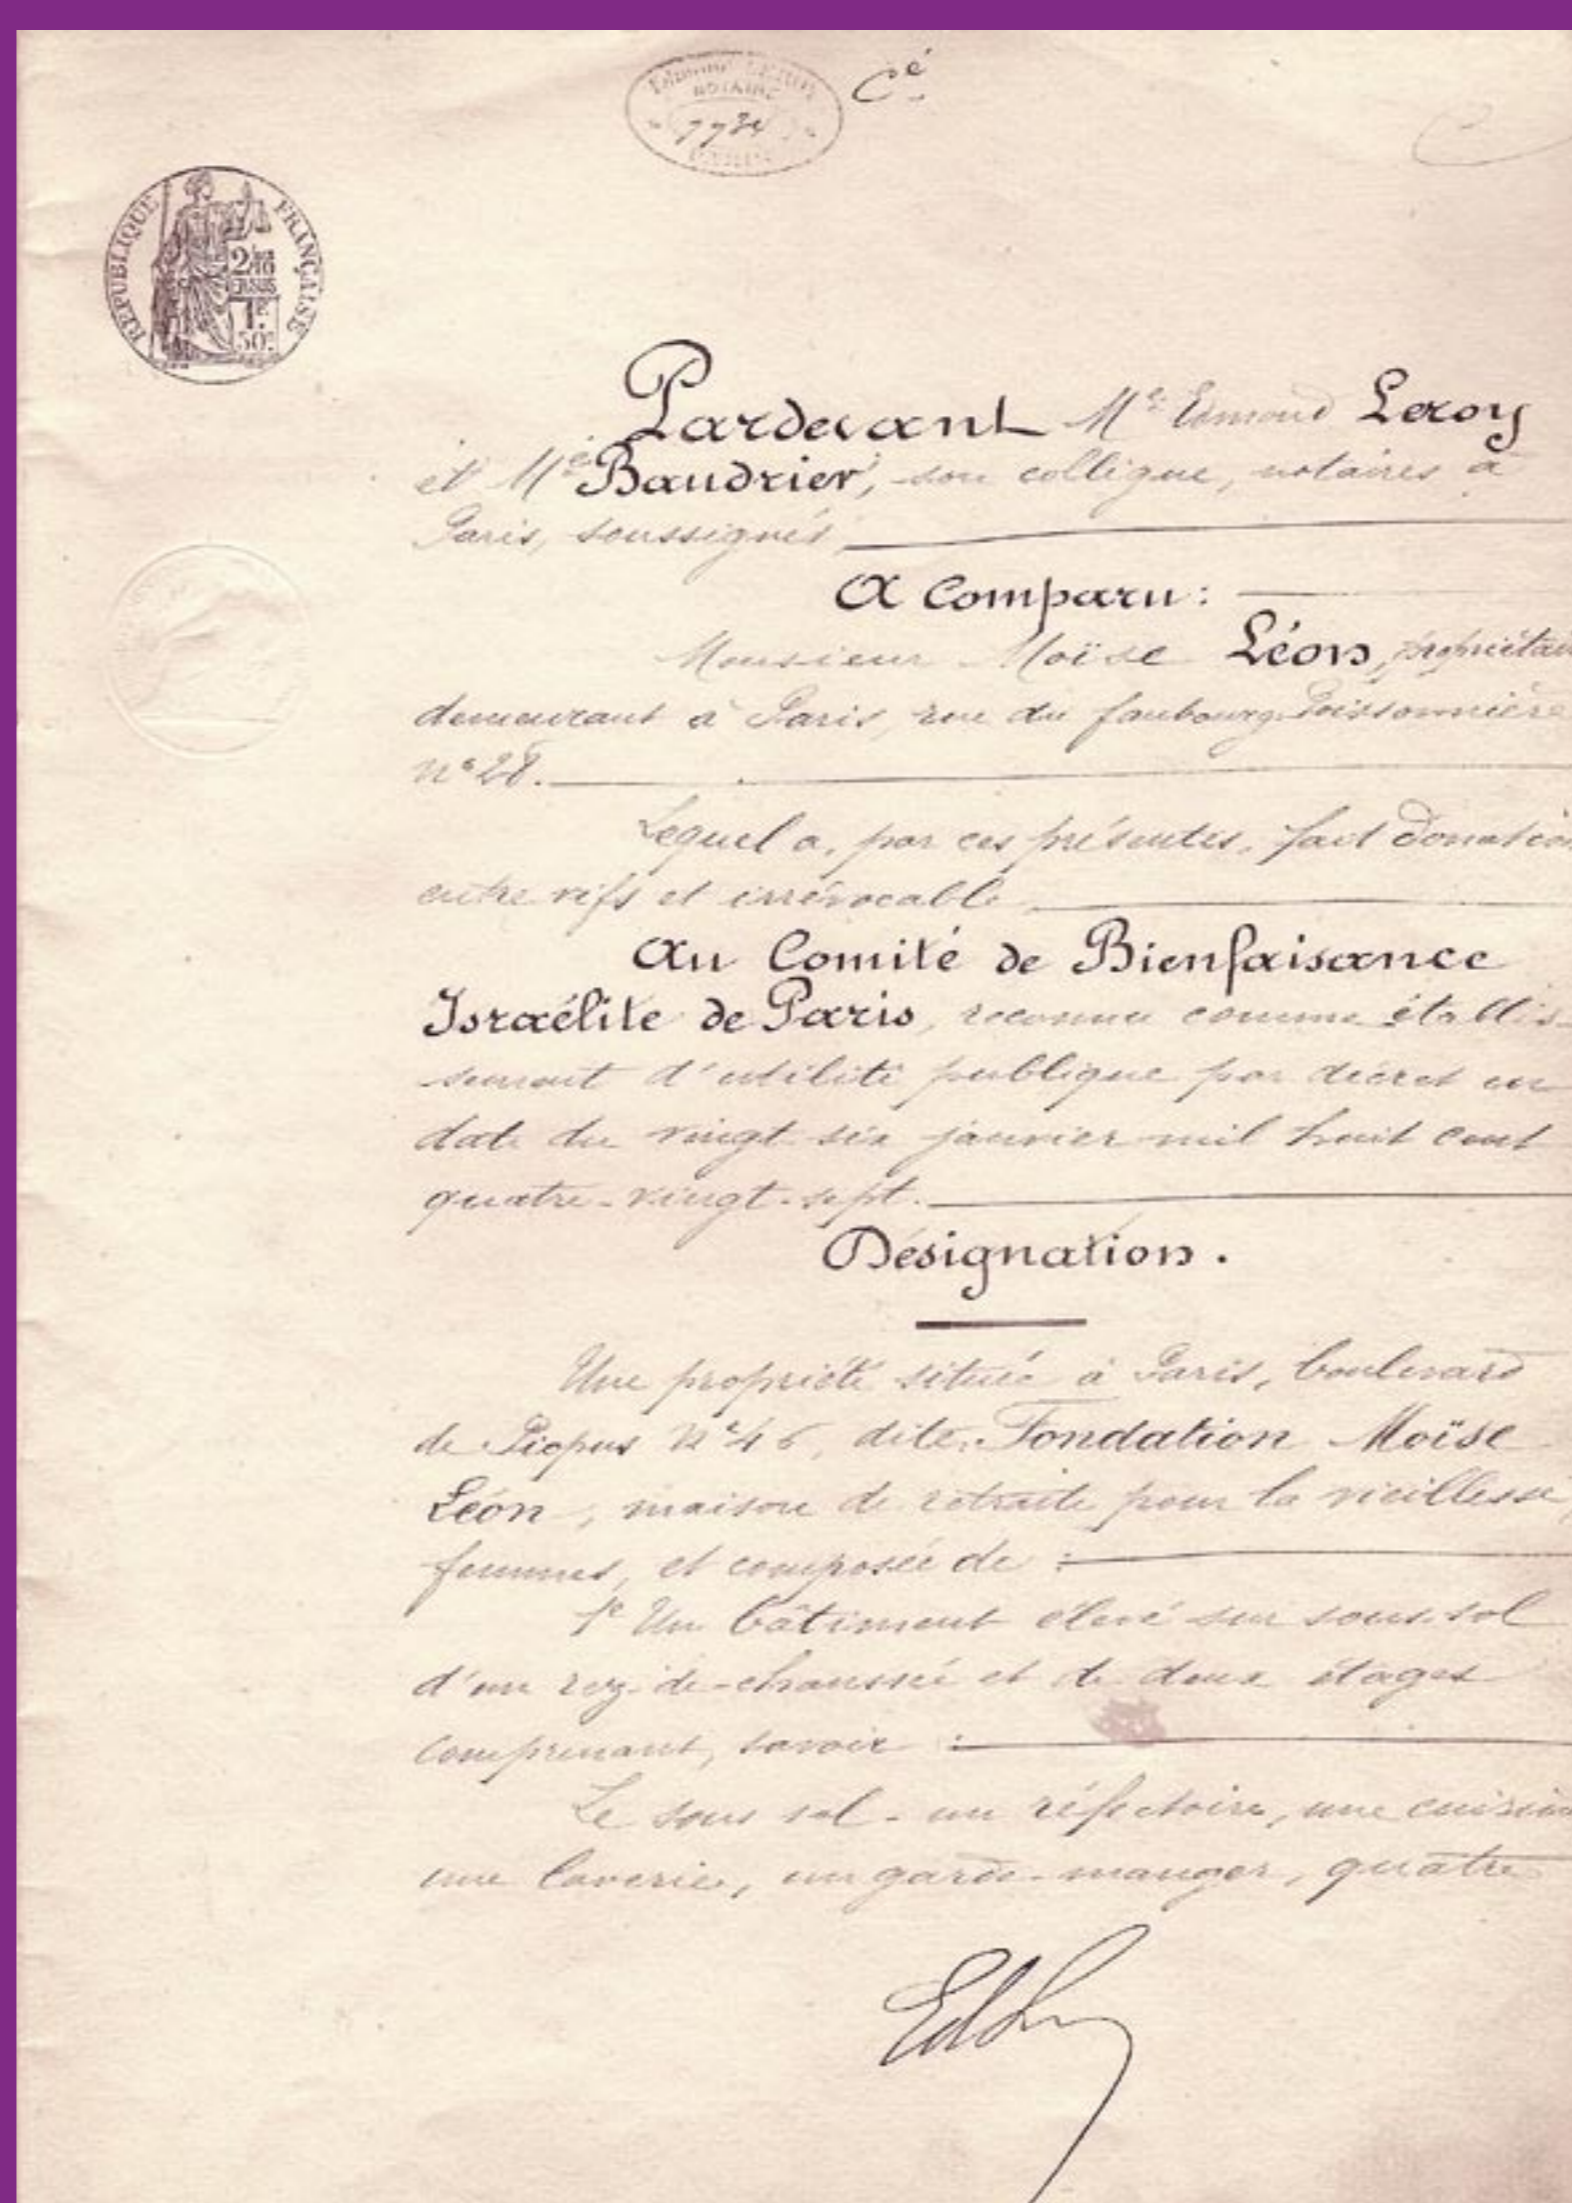 Cé
NOTAIRE
7734
RÉPUBLIQUE FRANÇAISE
2/10
EN SUS
1F.
50c.
Pardevant Me Edmond Leroy
et Me Baudrier, son collègue, notaires à
Paris, soussignés
A Comparu :
Monsieur Moïse Léon, propriétai
demeurant à Paris, rue du faubourg Poissonnière
No 28.
Lequel a, par ces présentes, fait donation
entre vifs et irrévocable
Au Comité de Bienfaisance
Israélite de Paris, reconnu comme établis-
sement d'utilité publique par décret en
date du vingt six janvier mil huit cent
quatre-vingt-sept.
Désignation.
Une propriété située à Paris, boulevard
de Picpus No 46, dite, Fondation Moïse
Léon, maison de retraite pour la vieillesse,
femmes, et composée de :
1o Un bâtiment élevé sur sous-sol
d'un rez-de-chaussée et de deux étages
comprenant, savoir :
Le sous sol - un réfectoire, une cuisin
une laverie, un garde-manger, quatre